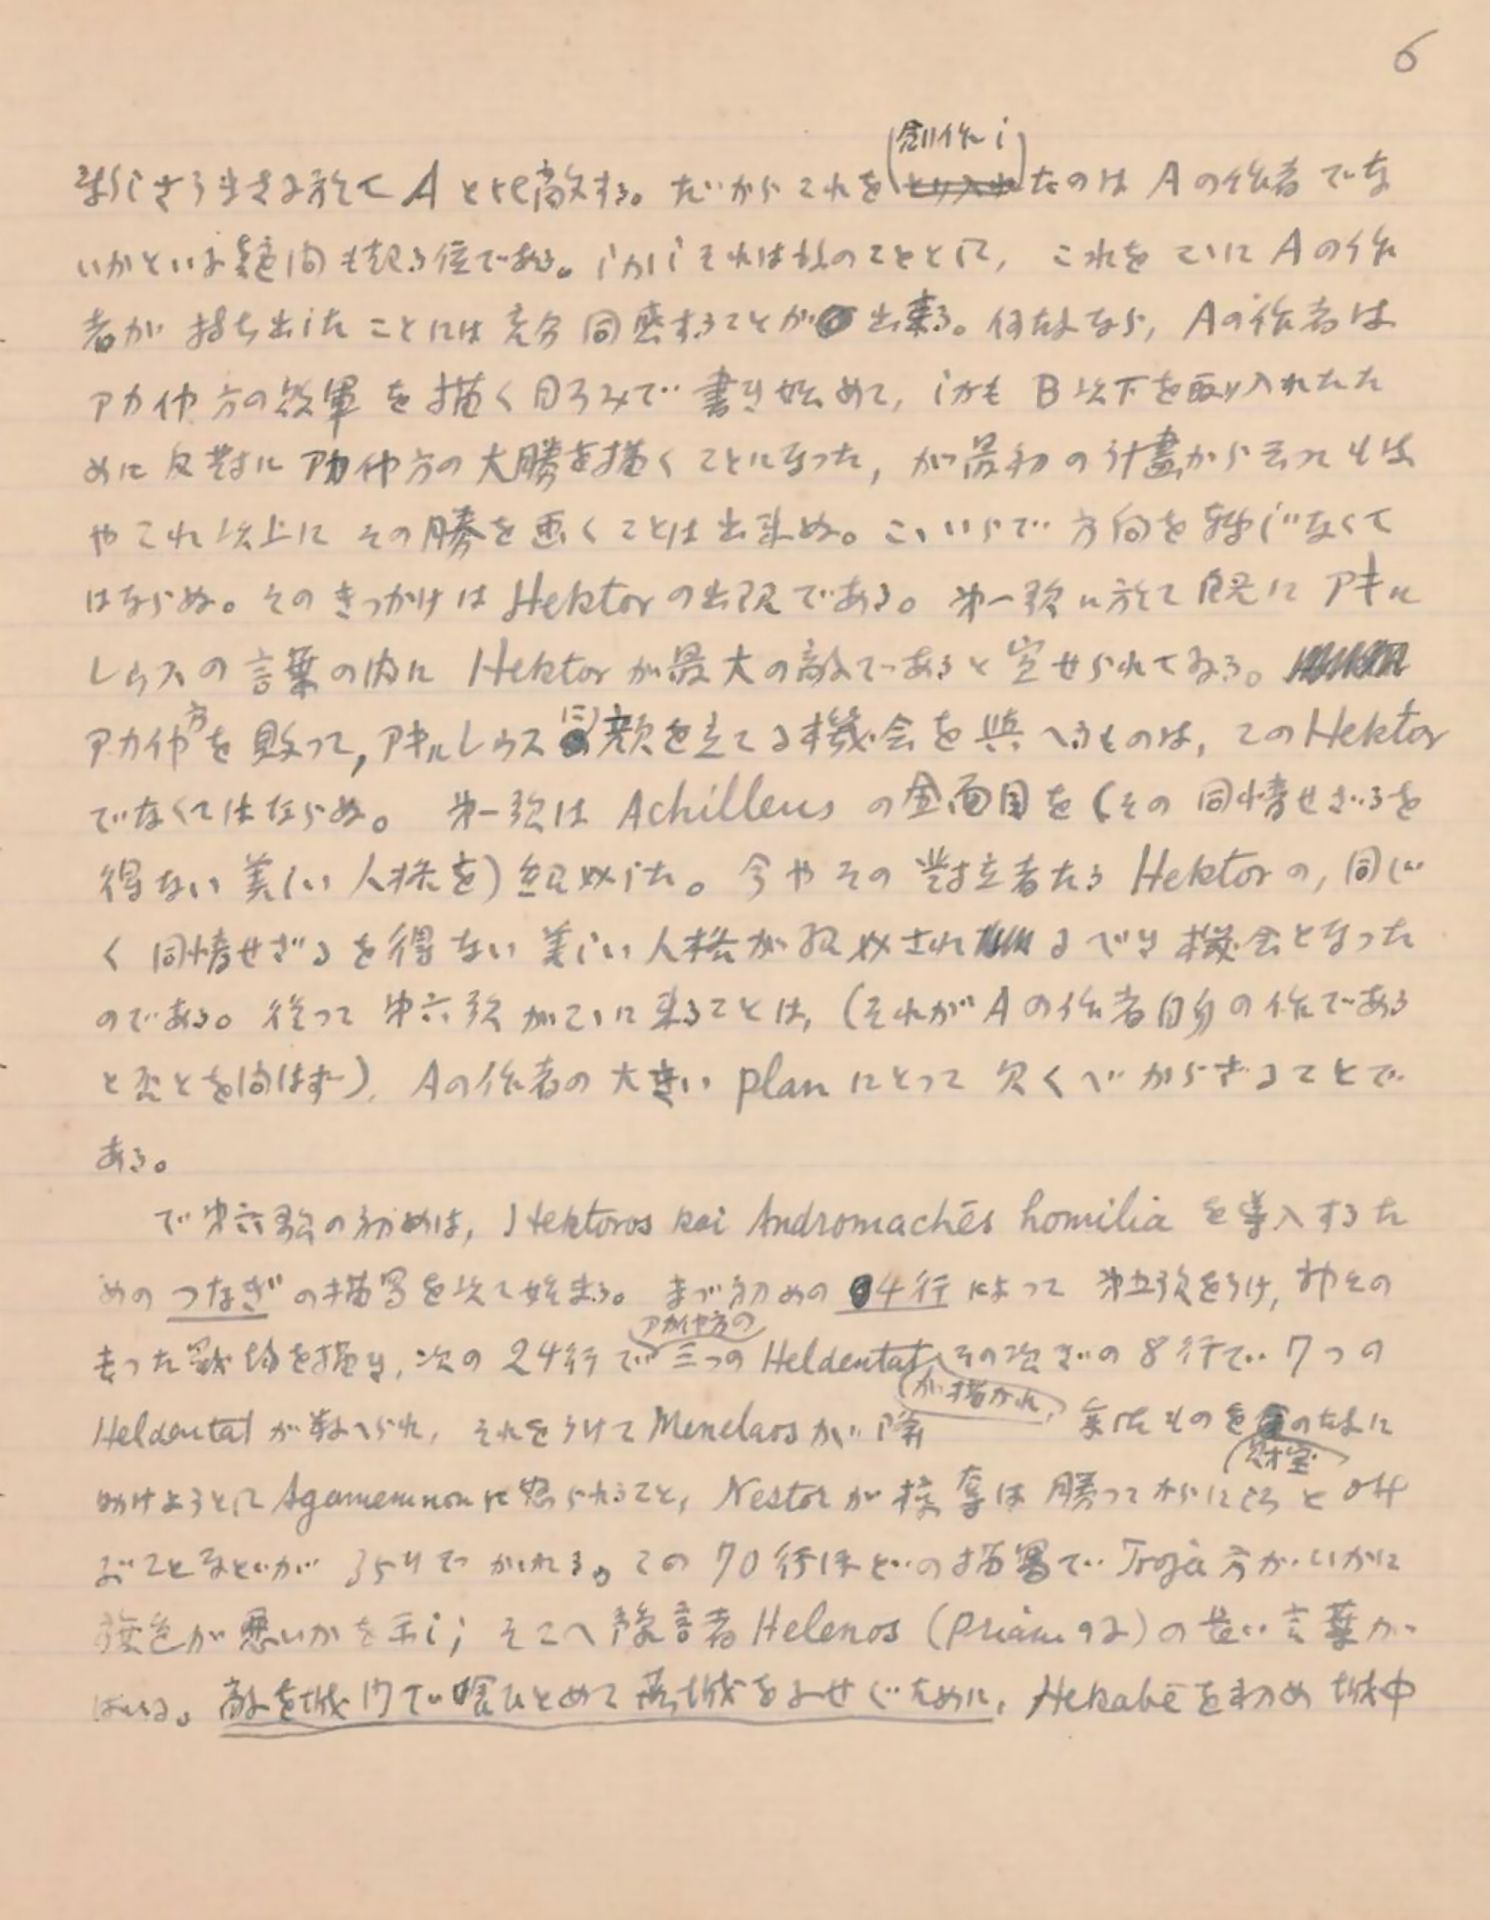 6
美しさうまさに於て A と比敵する。だからこれを創作したのは A の作者でな
いかといふ疑問も起る位である。しかしそれは別のこととして, これをここに A の作
者が持ち出したことには充分同感することが出来る。何故なら, Aの作者は
アカイヤ方の敗軍を描く目ろみで書き始めて, しかも B 以下を取り入れたた
めに反対にアカイヤ方の大勝を描くことになった, が最初の計畫から云つてもは
やこれ以上にその勝を画くことは出来ぬ。こゝいらで方向を轉じなくて
はならぬ。そのきっかけは Hektor の出現である。第一歌に於て既にアキル
レウスの言葉の内に Hektor が最大の敵であると宣せられてゐる。
アカイヤ方を敗つて, アキルレウスに顔を立てる機会を與へるものは, この Hektor
でなくてはならぬ。 第一歌は Achilleus の全面目を (その同情せざるを
得ない美しい人格を) 現はした。今やその對立者たる Hektor の, 同じ
く同情せざるを得ない美しい人格が現はさるべき機会となった
のである。従って第六歌がこゝに来ることは, (それが A の作者自身の作である
と否とを問はず), Aの作者の大きい plan にとって欠くべからざることで
ある。
で第六歌の初めは, Hektoros kai Andromachēs homilia を導入するた
めのつなぎの描写を以て始まる。まづ初めの 4行によって第五歌をうけ, 神々の
去った戰場を描き, 次の 24行でアカイヤ方の三つの Heldentat が描かれ, その次ぎの 8行で 7つの
Heldentat が数へられ, それをうけて Menelaos が降 参したものを財宝のために
助けようとして Agamemnon に怒られること, Nestor が掠奪は勝つてからにしろと
ことなどが 35行でかゝれる。この 70行ほどの描写で Troja 方がいかに
旗色が悪いかを示し; そこへ豫言者 Helenos (Priamの子) の長い言葉が
はいる。敵を城門で喰ひとめて落城をふせぐために, Hekabē を初め城中